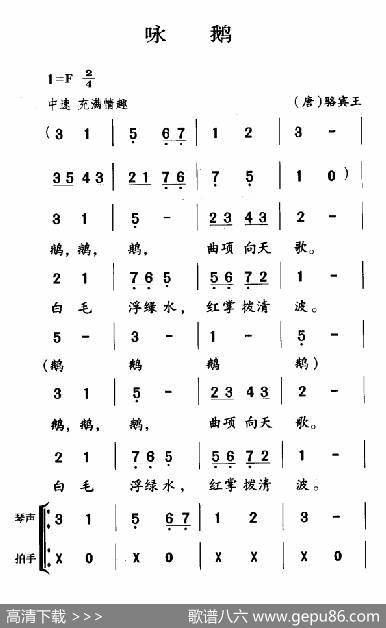 咏 鹅
1=F 2/4
中速 充满情趣
(唐)骆宾王
(3 1 | 5 67 | 1 2 | 3 - |
35 43 | 21 76 | 7 5 | 1 0) |
3 1 | 5 - | 23 43 | 3 - |
鹅,鹅, 鹅, 曲项 向天 歌。
2 1 | 76 5 | 56 72 | 1 - |
白 毛 浮绿 水, 红掌 拨清 波。
5 - | 3 - | 1 - | 5 - |
(鹅 鹅 鹅 鹅)
3 1 | 5 - | 23 43 | 3 - |
鹅,鹅, 鹅, 曲项 向天 歌。
2 1 | 76 5 | 56 72 | 1 - |
白 毛 浮绿 水, 红掌 拨清 波。
琴声 3 1 | 5 67 | 1 2 | 3 - |
拍手 X 0 | X 0 | X 0 | X 0 |
高清下载 >>>
歌谱八六 www.gepu86.com